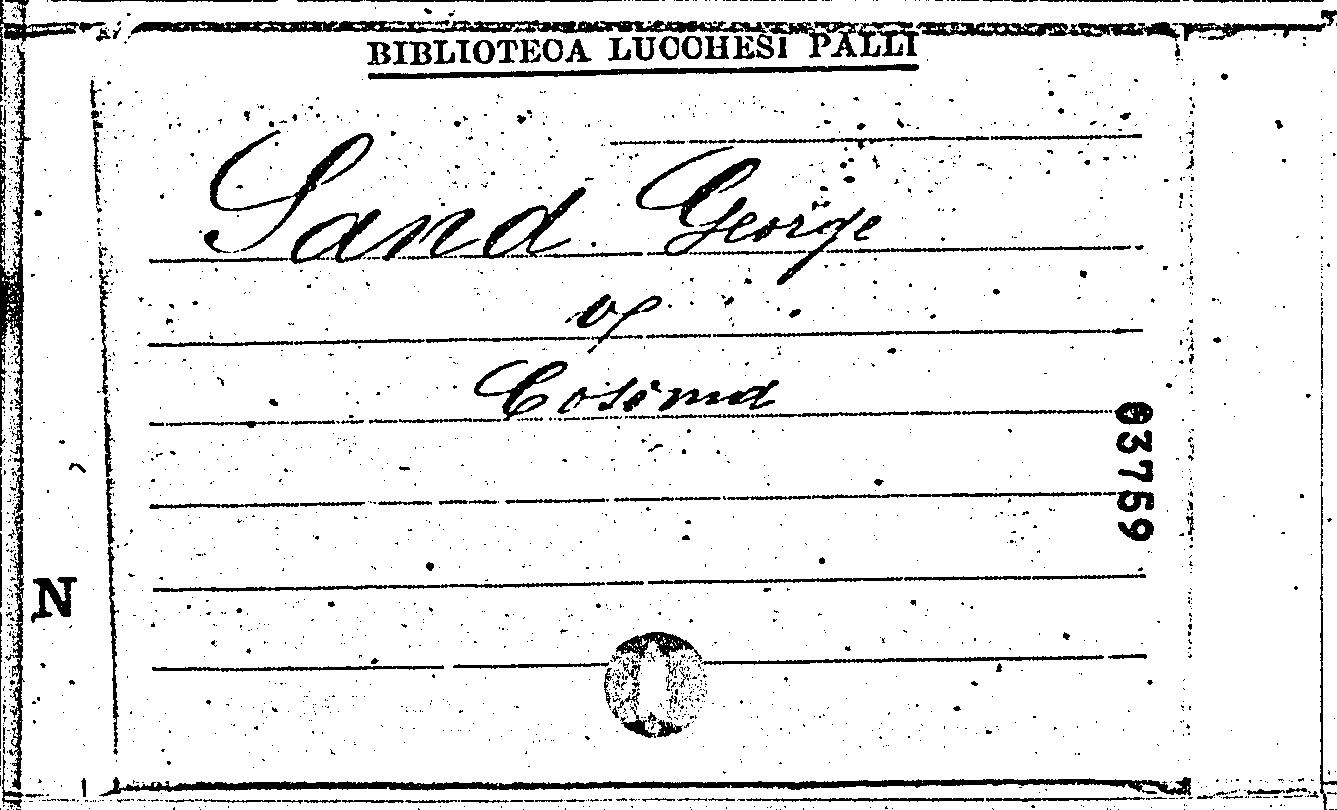 BIBLIOTECA LUCCHESI PALLI
Sand George
Cosima
03759
N